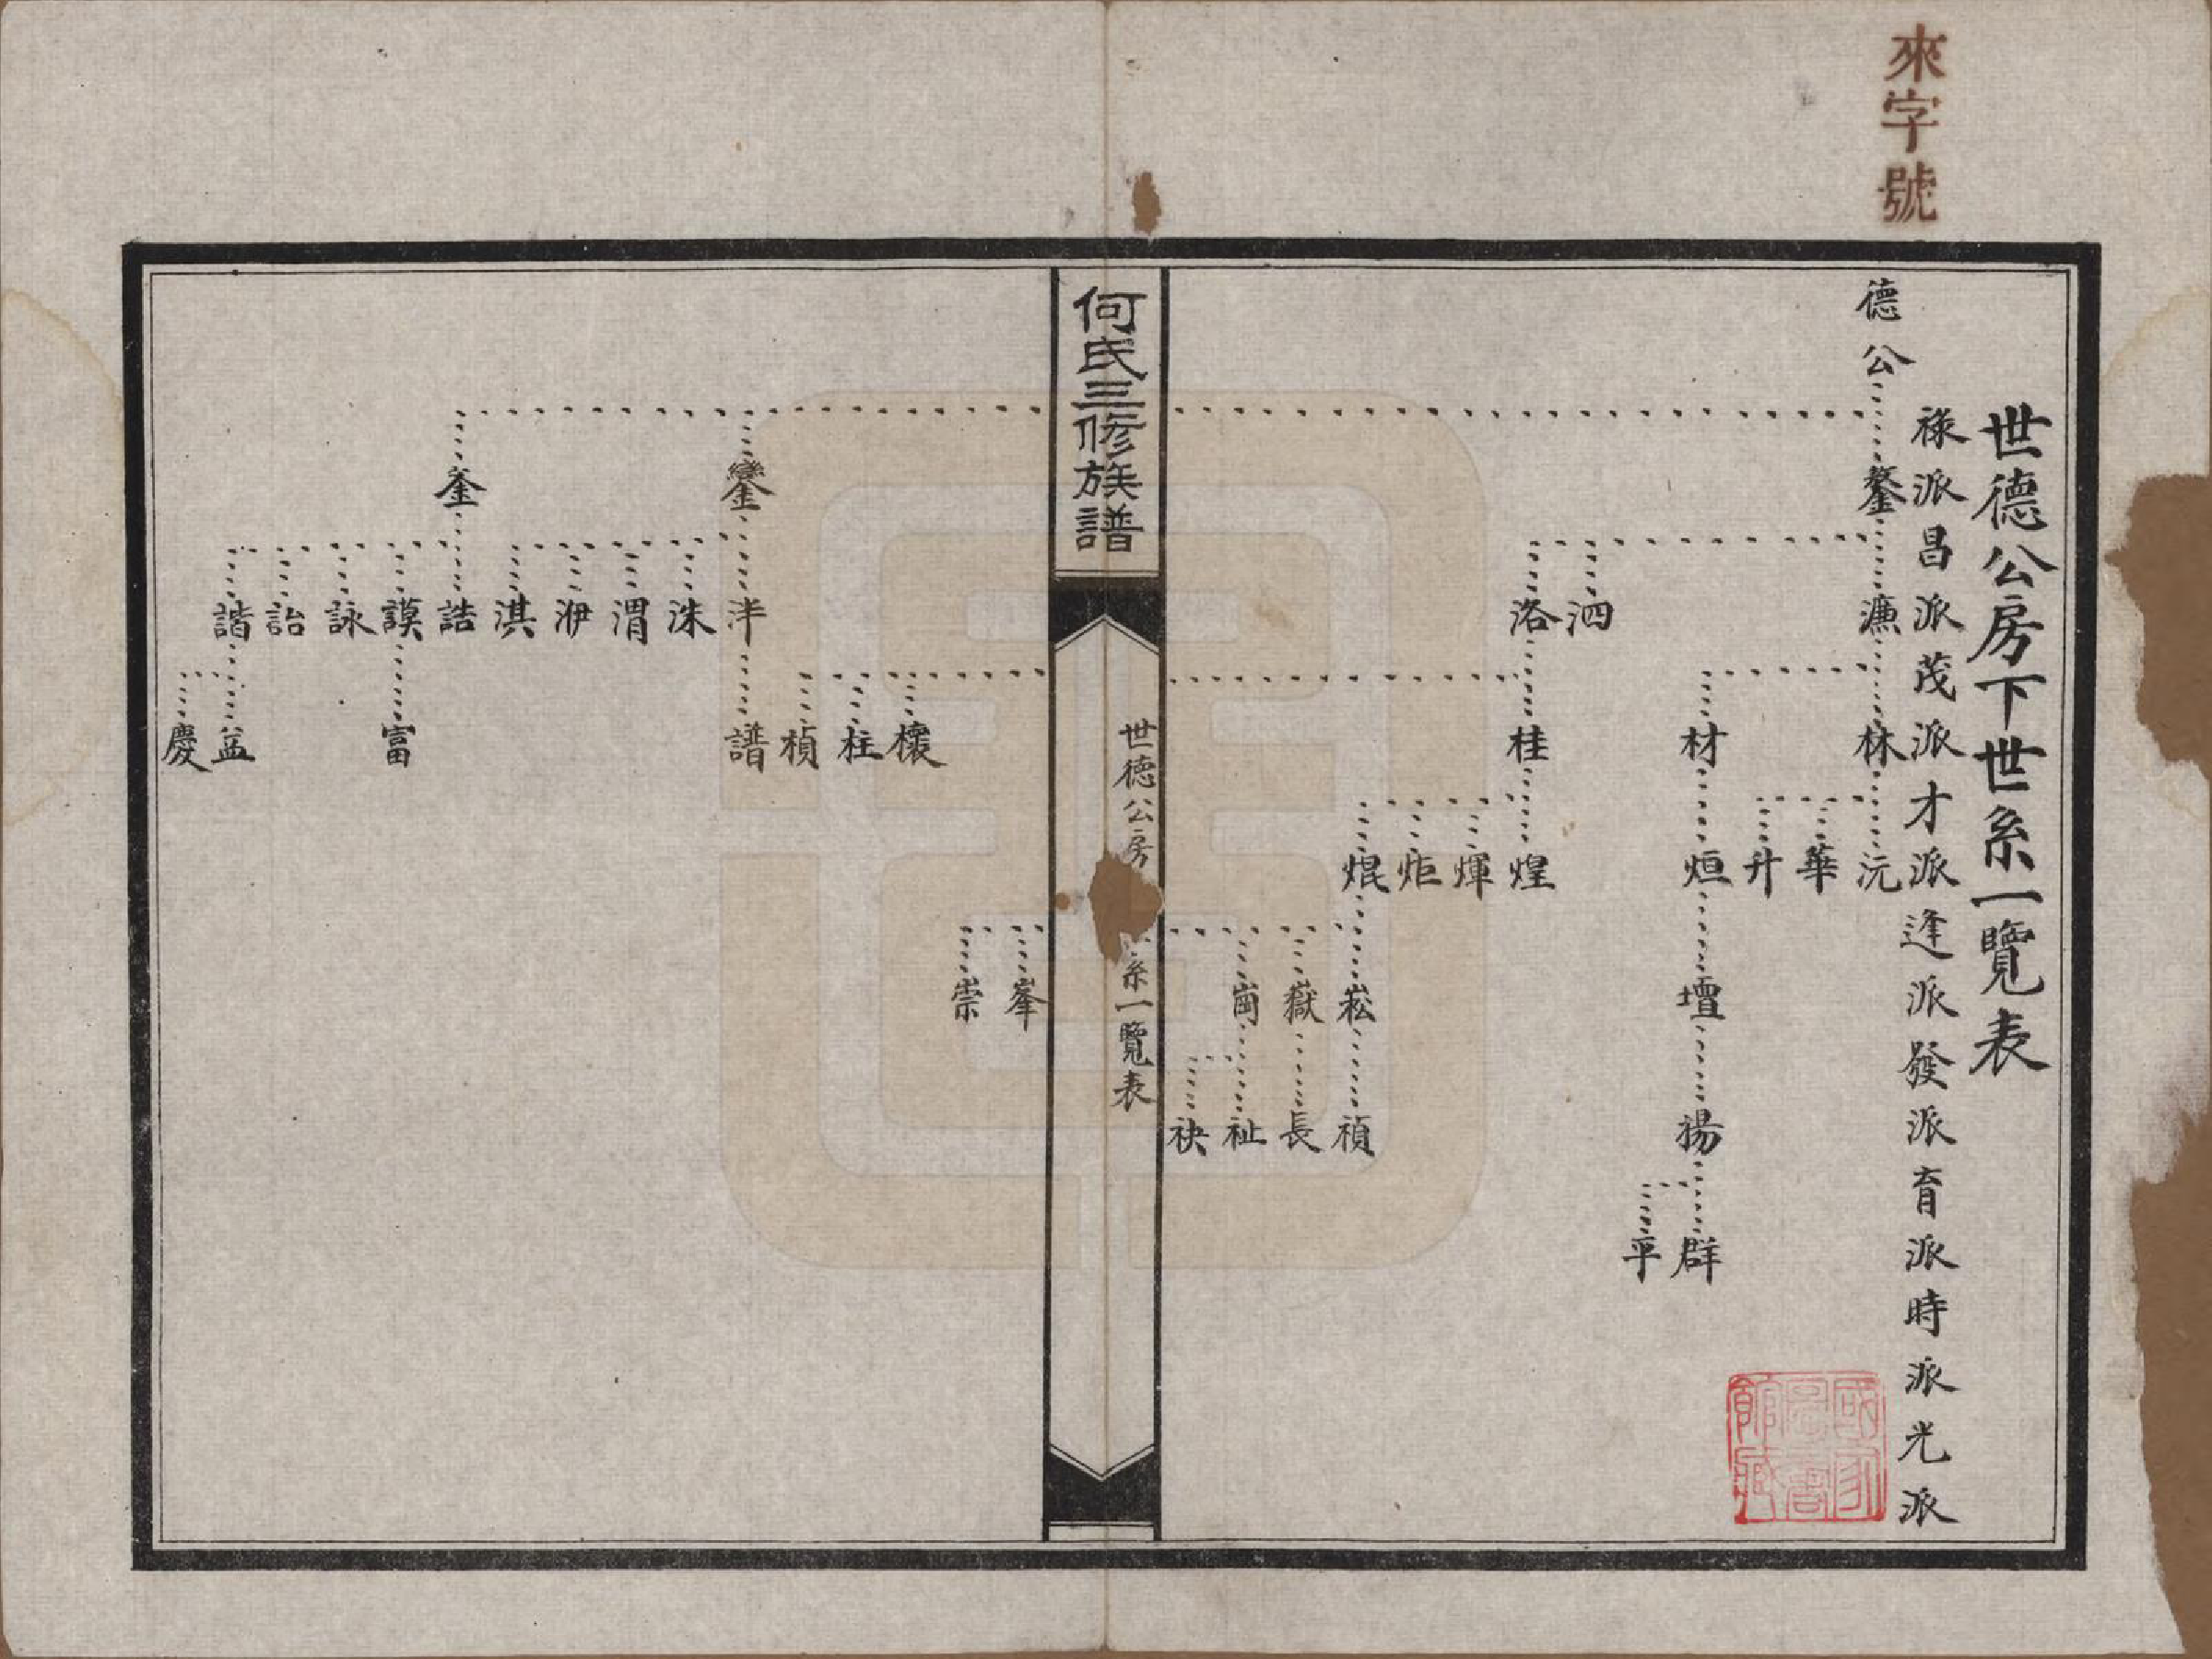 來字號
世德公房下世系一覽表
祿派昌派茂派才派逢派發派育派時派光派
德公
鏊濂林沅
華
升
材烜壇揚群
平
泗
洛桂煌
煇
炬
焜崧禎
嶽長
崗祉
袂
何氏三修族譜
世德公房
系一覽表
峯
崇
櫰
柱
楨
鑾泮譜
洙
渭
洢
淇
釜誥
謨富
詠
詒
諧益
慶
國家圖書館藏